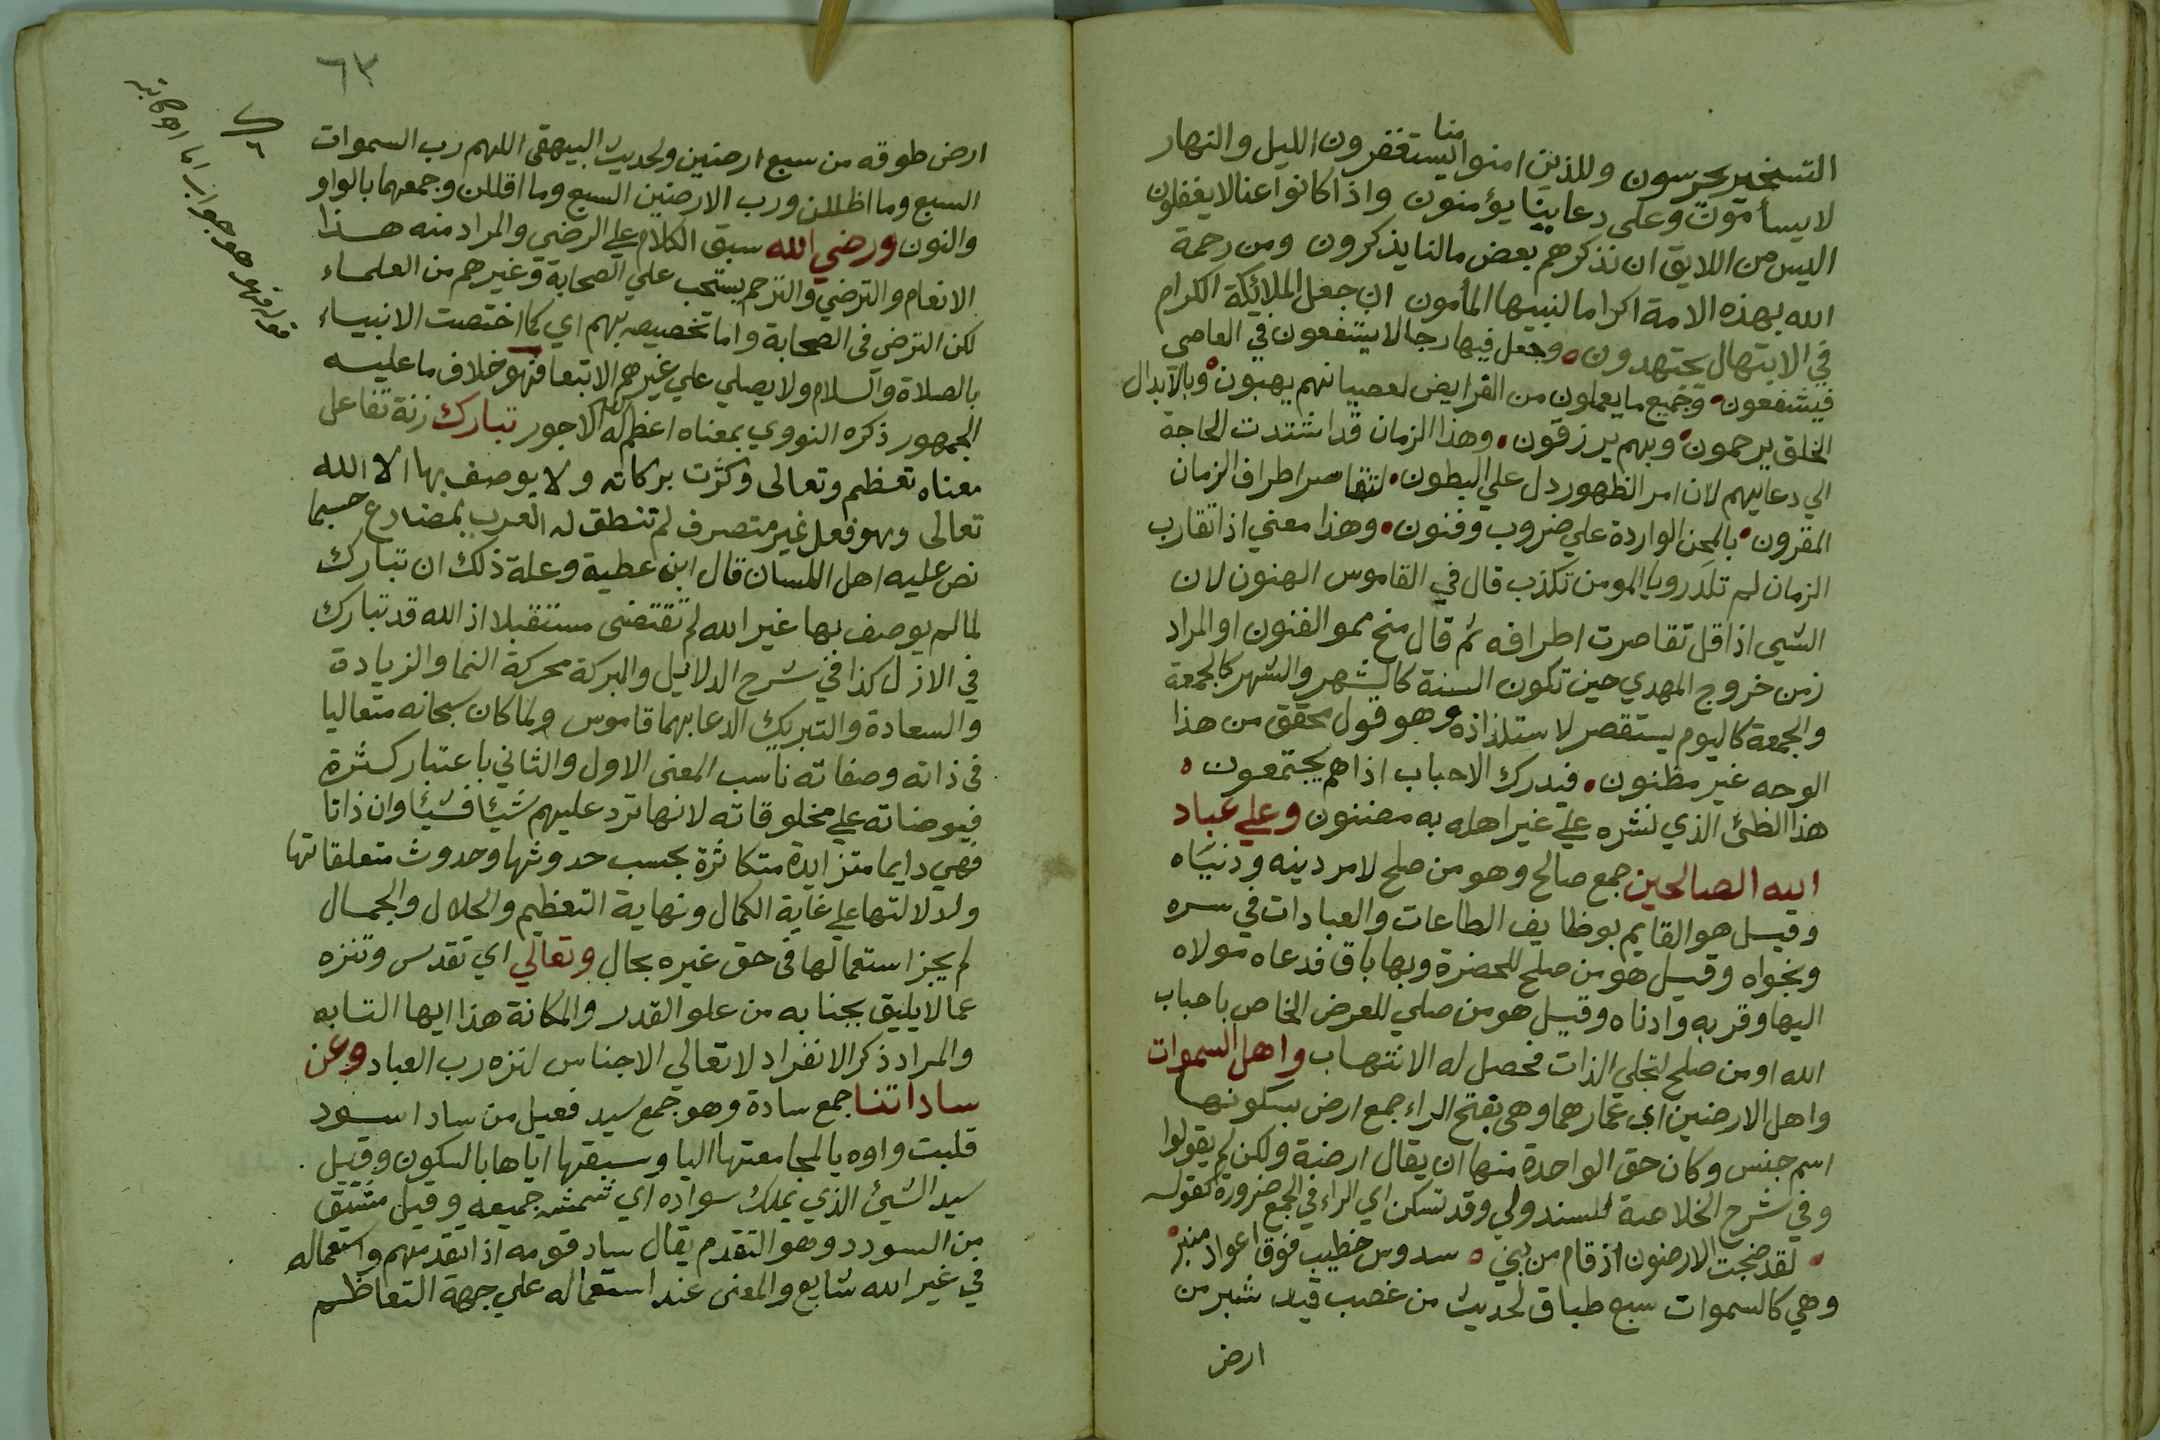 التسخير يحرسون وللذين امنوا منا ليستغفرون الليل والنهار
لا يسأمون وعلى دعاينا يؤمنون واذا كانوا عنا لا يغفلون
اليس من اللايق ان نذكرهم بعض مالنا يذكرون ومن رحمة
الله بهذه الامة اكراما لنبيها المأمون ان جعل الملائكة الكرام
في الابتهال يجتهدون وجعل فيها رجالا يشفعون في العاصي
فيشفعون وجميع ما يعملون من الفرايض لعصيانهم يهبون وبالابدال
الخلق يرحمون وبهم يرزقون وهذا الزمان قد اشتدت الحاجة
الي دعايهم لان امر الظهور دل علي البطون لتقاصر اطراف الزمان
المقرون بالمحن الواردة علي ضروب وفنون وهذا معني اذا تقارب
الزمان لم تكد رويا المومن تكذب قال في القاموس لان
الشي اذا قل تقاصرت اطرافه ثم قال او المراد
زمن خروج المهدي حين تكون السنة كالشهر والشهر كالجمعة
والجمعة كاليوم يستقصر لاستلذاذه وهو قول محقق من هذا
الوجه غير مظنون فيدرك الاحباب اذا هم يجتمعون
هذا الذي لنشره علي غير اهله به مضنون وعلي عباد
الله الصالحين جمع صالح وهو من صلح لامر دينه ودنياه
وقيل هو القايم بوظايف الطاعات والعبادات في سره
ونجواه وقيل هو من صلح للحضرة وبها باق فدعاه مولاه
اليها وقربه وادناه وقيل هو من صلي للعرض الخاص باحباب
الله او من صلح لتجلي الذات فحصل له الانتهاب واهل السموات
واهل الارضين اي عمارهما وهي بفتح الراء جمع ارض بسكونها
اسم جنس وكان حق الواحدة منها ان يقال ارضة ولكن لم يقولوا
وفي شرح الخلاصة للسندولي وقد تسكن اي الراء في الجمع ضرورة كقوله
لقد ضجت الارضون اذ قام من بني سدوس خطيب فوق اعواد منبر
وهي كالسموات سبع طباق لحديث من غصب قيد شبر من
ارض
٦٣
ارض طوقه من سبع ارضين ولحديث البيهقي اللهم رب السموات
السبع وما اظللن ورب الارضين السبع وما اقللن وجمعهما بالواو
والنون ورضي الله سبق الكلام علي الرضي والمراد منه هذا
الانعام والترضي والترحم يستحب علي الصحابة وغيرهم من العلماء
لكن الترضي في الصحابة واما تخصيصه بهم اي كما اختصت الانبياء
بالصلاة والسلام ولا يصلي علي غيرهم الا تبعا فهو خلاف ما عليه
الجمهور ذكره النووي بمعناه اعظم الله له الاجور تبارك زنة تفاعل
معناه تعظم وتعالى وكثرت بركاته ولا يوصف بها الا الله
تعالى وهو فعل غير متصرف لم تنطق له العرب بمضارع حسبما
نص عليه اهل اللسان قال ابن عطية وعلة ذلك ان تبارك
لما لم يوصف بها غير الله لم تقتضى مستقبلا اذ الله قد تبارك
في الازل كذا في شرح الدلايل والبركة محركة النما والزيادة
والسعادة والتبريك الدعا بهما قاموس ولما كان سبحانه متعاليا
في ذاته وصفاته ناسب المعنى الاول والثاني باعتبار كثرة
فيوضاته علي مخلوقاته لانها ترد عليهم شيئا فشيئا وان ذاتا
فهي دايما متزايدة متكاثرة بحسب حدوثها وحدوث متعلقاتها
ولدلالتها علي غاية الكمال ونهاية التعظيم والجلال والجمال
لم يجز استعمالها في حق غيره بحال وتعالي اي تقدس وتنزه
عما لا يليق بجنابه من علو القدر والمكانة هذا ايها التابه
والمراد ذكر الانفراد لا تعالي الاجناس لتزه رب العباد وعن
ساداتنا جمع سادة وهو جمع سيد فعيل من ساد اسود
قلبت واوه يا لمجامعتها اليا وسبقها اياها بالسكون وقيل
سيد الشيئ الذي يملك سواده اي شمسه جميعه وقيل مشتق
من السودد وهو التقدم يقال ساد قومه اذا تقدمهم واستعماله
في غير الله شايع والمعنى عند استعماله علي جهة التعاظم
قوله فهو هو جواب اما